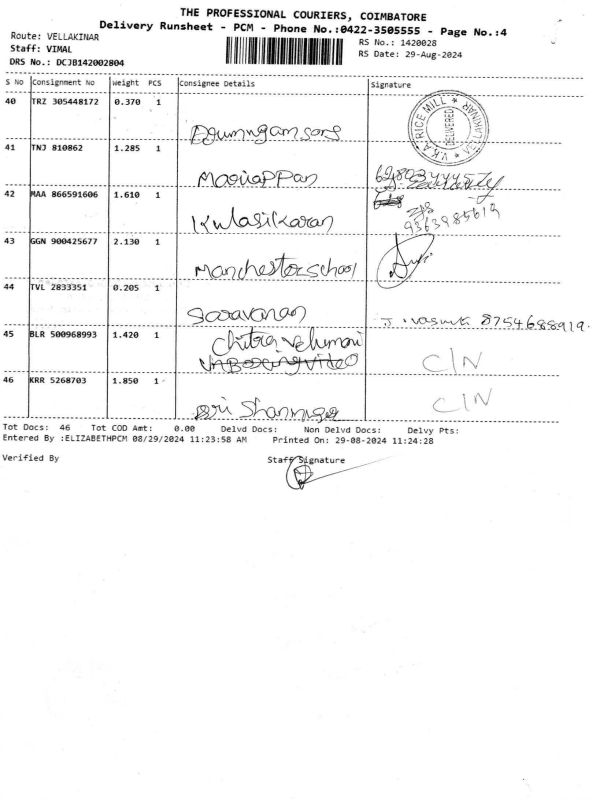 THE PROFESSIONAL COURIERS, COIMBATORE
Delivery Runsheet - PCM - Phone No.:0422-3505555 - Page No.:4
Route: VELLAKINAR
RS No.: 1420028
Staff: VIMAL
RS Date: 29-Aug-2024
DRS No.: DCJB142002804
S No Consignment No Weight PCS Consignee Details Signature
40 TRZ 305448172 0.370 1
V.K.A RICE MILL * VELLAKINAR *
DELIVERED
41 TNJ 810862 1.285 1
Mariappan
42 MAA 866591606 1.610 1
Kulasikaran
9363985619
43 GGN 900425677 2.130 1
Manchester school
44 TVL 2833351 0.205 1
Saravanan
8754688919.
45 BLR 500968993 1.420 1
Chitra Velumani
unBoxing video
C/N
46 KRR 5268703 1.850 1
Sri Shanmuga
C/N
Tot Docs: 46 Tot COD Amt: 0.00 Delvd Docs: Non Delvd Docs: Delvy Pts:
Entered By :ELIZABETHPCM 08/29/2024 11:23:58 AM Printed On: 29-08-2024 11:24:28
Verified By Staff Signature